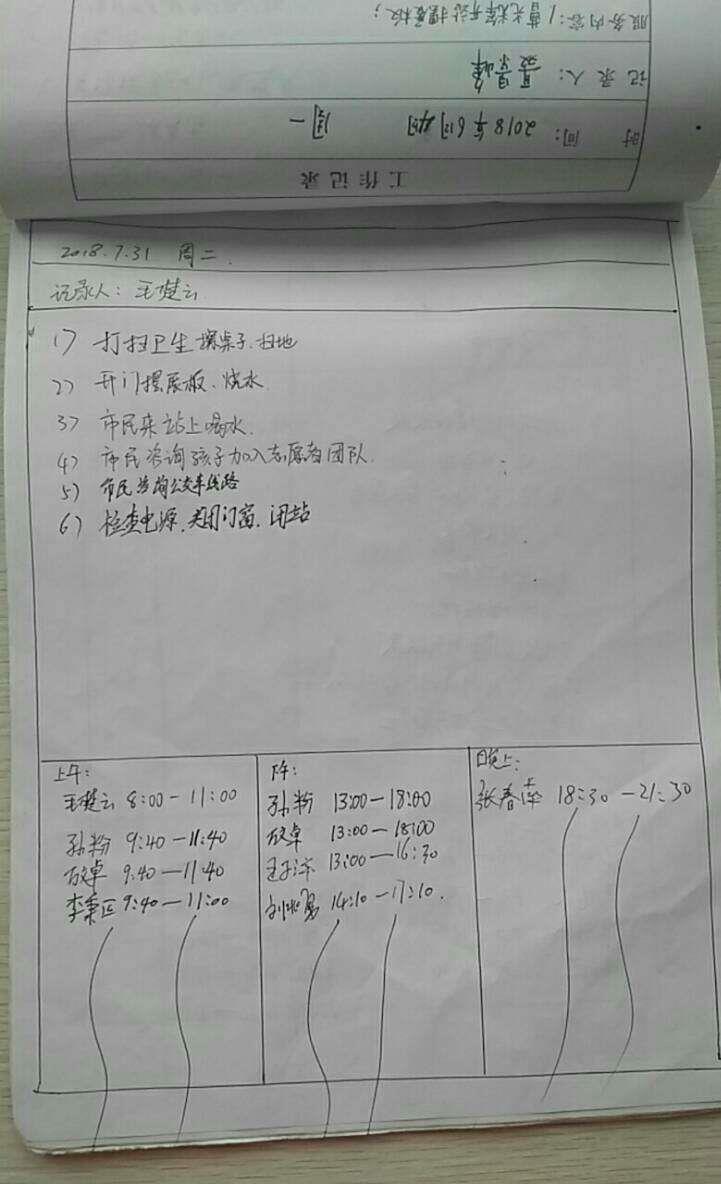 工作记录
时 间: 2018年6月4日 周一
记录人:
服务内容: 1 开站摆展板;
2018.7.31 周二.
记录人: 王楚云
1) 打扫卫生 擦桌子、扫地
2) 开门摆展板、烧水
3) 市民来站上喝水.
4) 市民咨询孩子加入志愿者团队.
5) 市民咨询公交车线路
6) 检查电源、关闭门窗、闭站
上午:
王楚云 8:00-11:00
孙粉 9:40-11:40
9:40-11:40
李秉臣 9:40-11:00
下午:
孙粉 13:00-18:00
13:00-18:00
13:00-16:30
14:10-17:10.
晚上:
张春萍 18:30-21:30